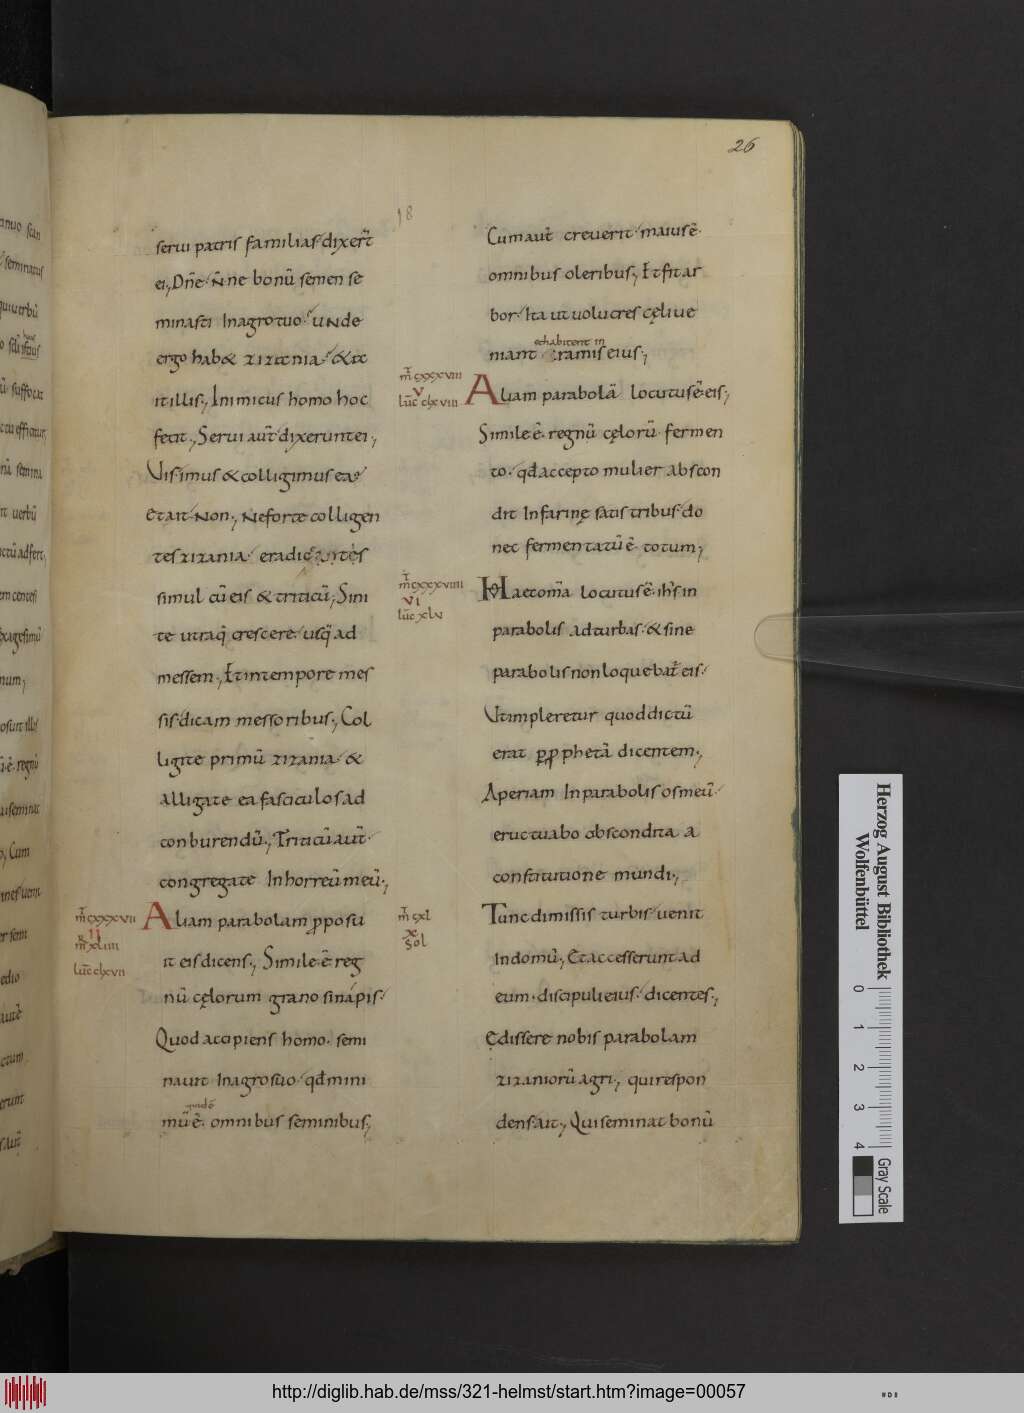 26
18
serui patris familias dixer̄t
ei; Dn̄e n̄ne bonū semen se
minasti In agro tuo. uNde
ergo hab& zizania. & a
it illis; Inimicus homo hoc
fecit; Serui aut̄ dixerunt ei;
Vis imus & colligimus ea
Et ait Non; Neforte colligen
tes zizania eradicetis
simul cū eis & triticū; Sini
te utraq; crescere usq; ad
messem; Et in tempore mes
sis dicam messoribus; Col
ligite primū zizania &
alligate ea fasciculos ad
conburendū; Triticū aut̄
congregate In horreū meū;
m̄t cxxxvii
ii
mr̄ xliiii
luc̄ clxvii
Aliam parabolam p̱posu
it eis dicens; Simile ē reg
nū cęlorum grano sinapis
Quod accipiens homo. semi
nauit In agro suo. qđ mini
quidē
mū ē. omnibus seminibus;
Cum aut̄ creuerit. maius ē.
omnibus oleribus; Et fit ar
bor. Ita ut uolucres cęli ue
& habitent in
niant ramis eius;
m̄t cxxxviii
v
luc̄ clxviii
Aliam parabolā locutus ē eis;
Simile ē. regnū cęlorū. fermen
to. qđ accepto mulier abscon
dit In farinę satis tribus do
nec fermentatū ē totum;
m̄t cxxxviiii
vi
luc̄ xlv
Haec om̄a locutus ē. ih̄s in
parabolis ad turbas. & sine
parabolis non loquebat̄ eis.
Vt impleretur quod dictū
erat p̱ p̱phetā dicentem;
Aperiam In parabolis os meū.
eructuabo abscondita a
constitutione mundi;
m̄t cxl
x
sol
Tunc dimissis turbis uenit
In domū; Et accesserunt ad
eum. discipuli eius. dicentes;
Edissere nobis parabolam
zizaniorū agri; qui respon
dens ait; Qui seminat bonū
Herzog August Bibliothek
Wolfenbüttel
0 1 2 3 4
Gray Scale
http://diglib.hab.de/mss/321-helmst/start.htm?image=00057